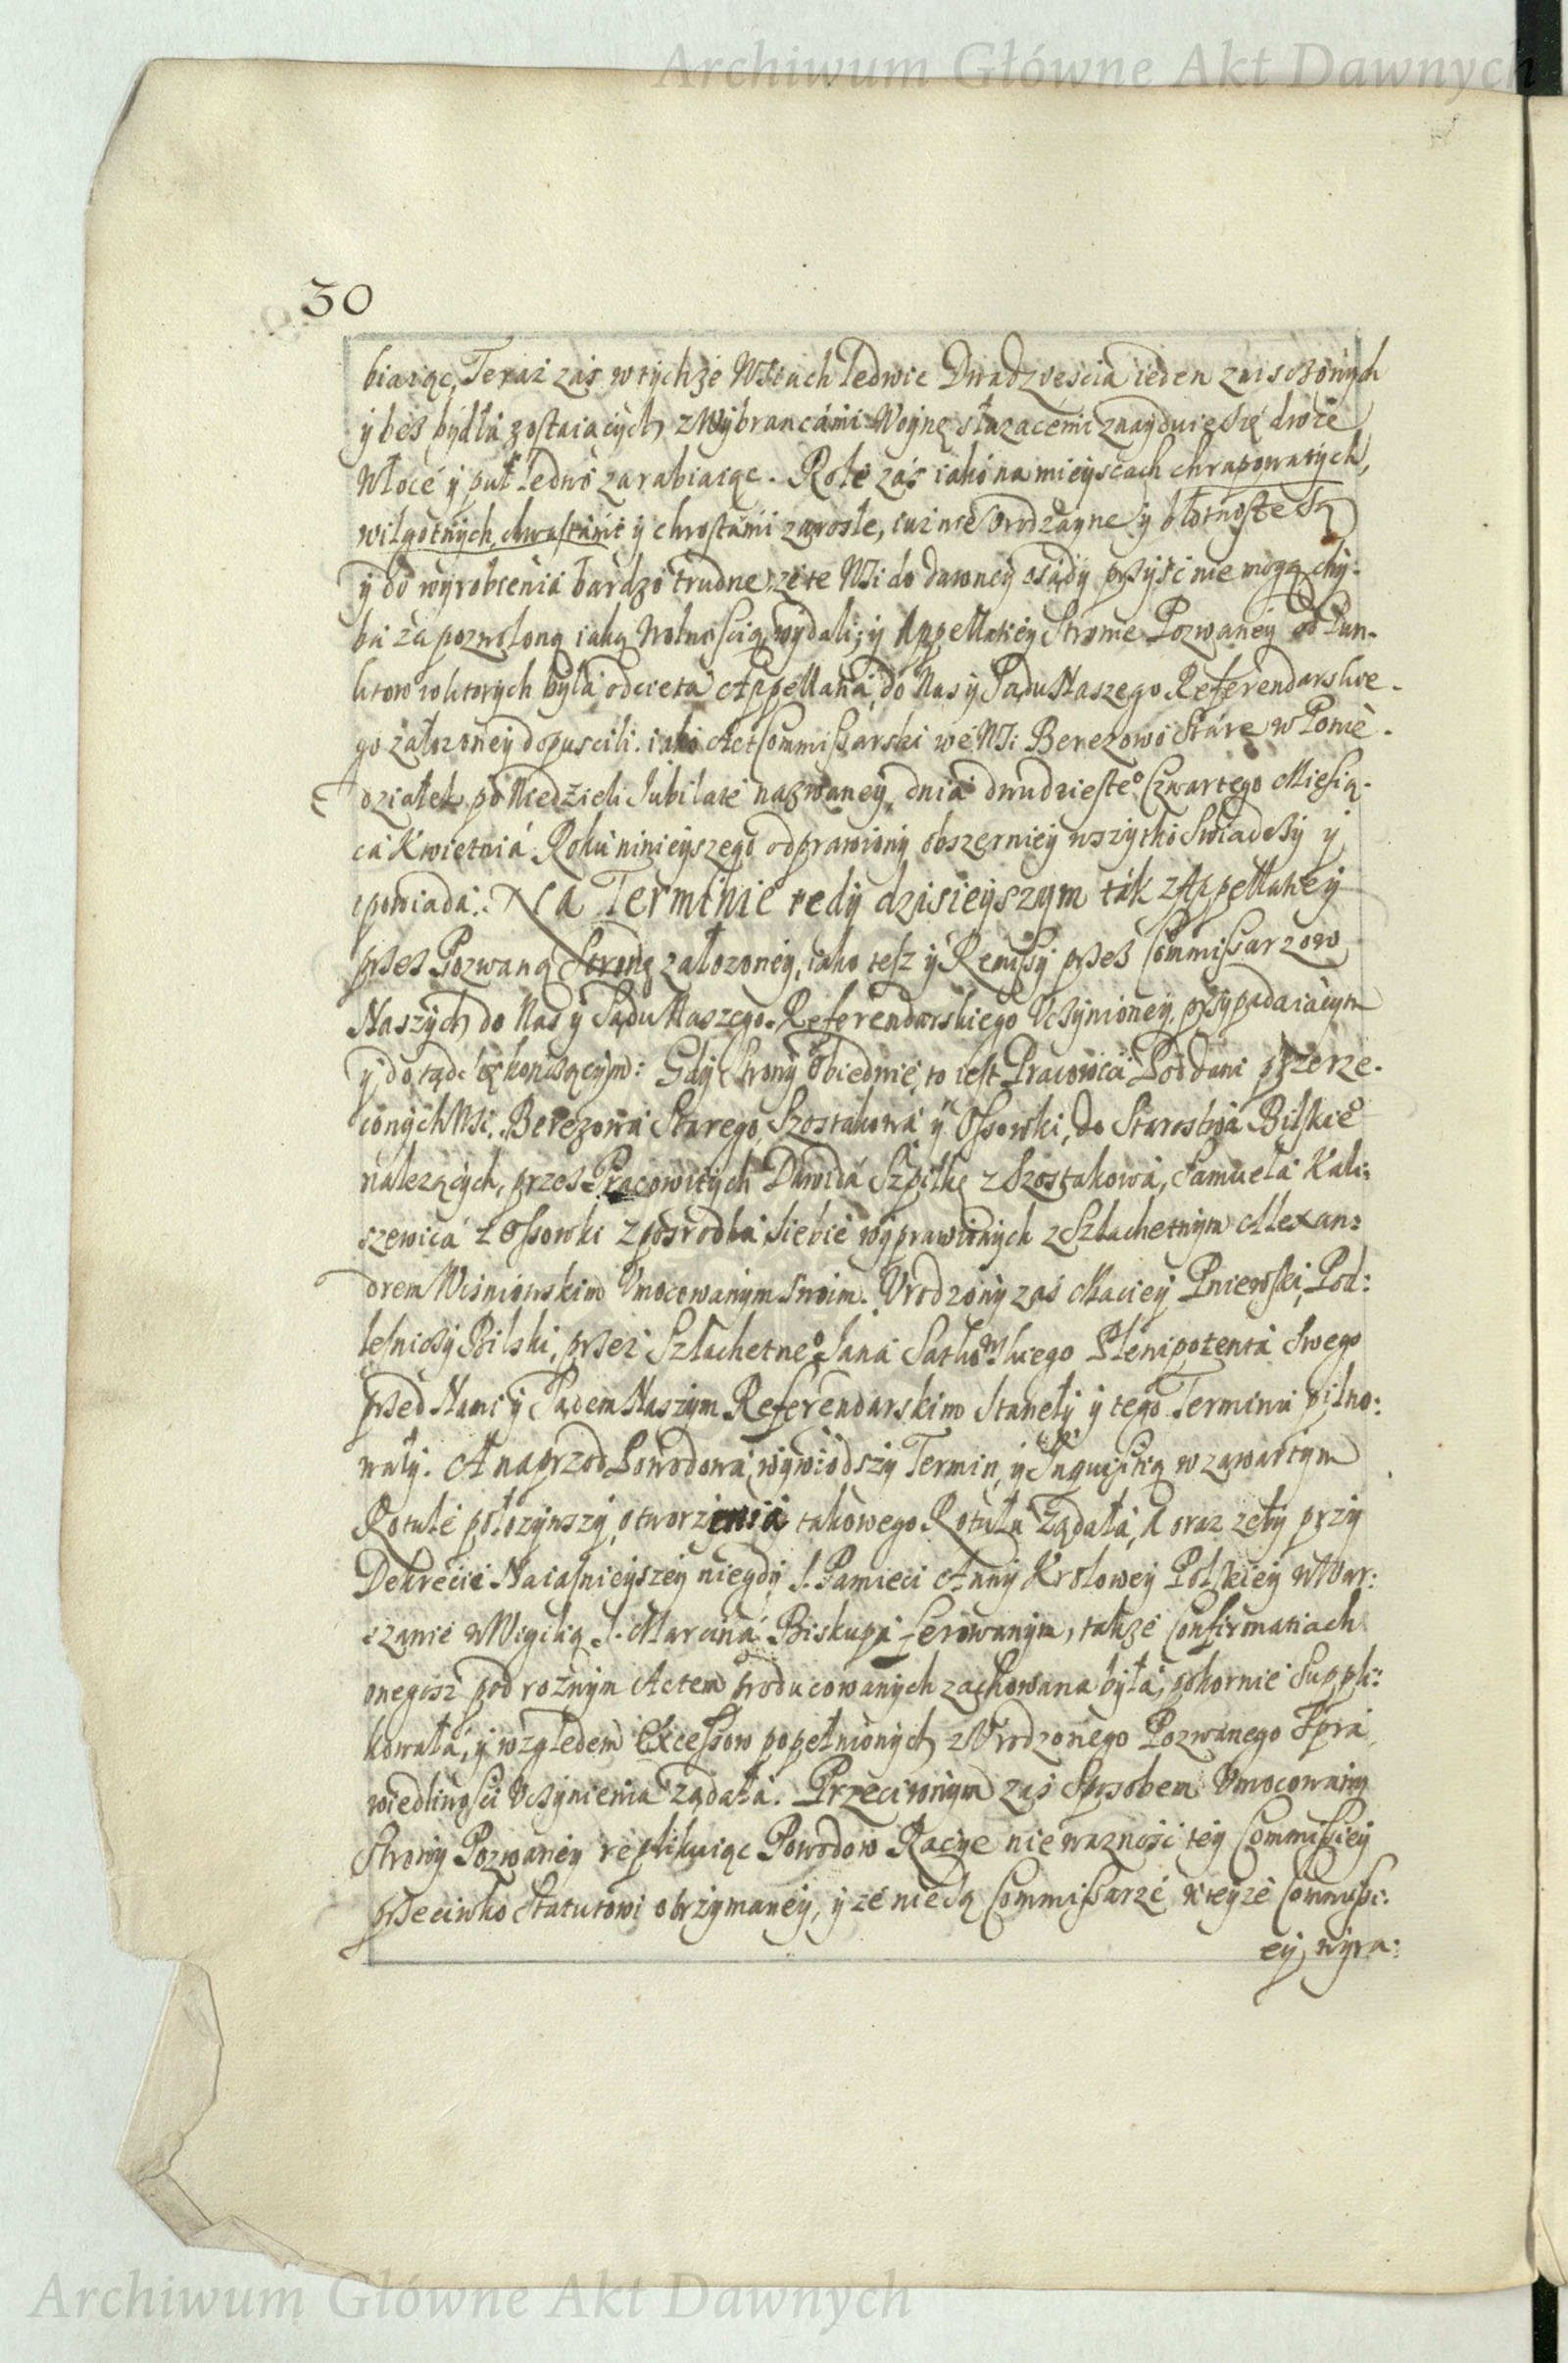 Archiwum Główne Akt Dawnych
30
biaiąc, Teraz zaś w tychże Wsiach ledwie Dwadzieścia ieden zniszczonych
y bez bydła zostaiących z Wybrancami Woynę służącemi znayduie się dwie
Włoce y puł ledwo zarabiaiąc. Role zaś iako na mieyscach chrapowatych,
wilgotnych, chwastami y chrostami zarosłe, iuż nie Vrodzayne y błotniste są
y do wyrobienia bardzo trudne, że te Wsi do dawney osady przyść nie mogą chy-
ba za pozwoloną iaką Wolnością wydali; y Appellatiey Stronie Pozwaney od Pun-
ktow w ktorych była odcięta Appellatia, do Nas y Sądu Naszego Referendarskie-
go założoney dopuscili. iako Act Commissarski we Wsi Berezowo Stare w Ponie-
działek po Niedzieli Jubilate nazwaney, dnia dwudziesteo Czwartego Miesią-
ca Kwietnia Roku ninieyszego odprawiony obszerniey wszytko Swiadczy y
opowiada. Na Terminie tedy dzisieyszym tak z Appellatiey
przez Pozwaną Stronę założoney, iako tesz y Remissy przez Commissarzow
Naszych do Nas y Sądu Naszego Referendarskiego Vczynioney, przypadaiącym
y dotąd kontynuującym: Gdy Strony Obiedwie, to iest Pracowici Poddani przerze-
czonych Wsi. Berezowa Starego, Szostakowa y Ossowki, do Starostwa Bilskieo
należących, przez Pracowitych Dawida Szpilkę z Szostakowa, Samuela Kali:
szewica z Ossowki z posrodka siebie wyprawionych z Szlachetnym Alexan:
drem Wiśniowskim Vmocowanym swoim. Vrodzony zaś Maciey Pniewski, Pod:
lesniczy Bilski, przez Szlachetneo Jana Satkowskiego Plenipotenta Swego
przed Nami y Sądem Naszym Referendarskim Staneły y tego Terminu pilno:
wały. A naprzod Powodowa, wywiodszy Termin, y Inquisitią w zawartym
Rotule położywszy, otworzenia takowego Rotułu żądała, A oraz żeby przy
Dekrecie Naiasnieyszey niegdy S. Pamieci Anny Krolowey Polskiey w War:
szawie w Wigilią S. Marcina Biskupa ferowanym, także Confirmatiach
onegosz pod roznym Actem producowanych zachowana była, pokornie Suppli:
kowała, y względem Excessow popełnionych z Vrodzonego Pozwanego Spra
wiedliwości Vczynienia żądała. Przeciwnym zaś Sposobem Vmocowany
Strony Pozwaney replikuiąc Powodow Racye nieważność tey Commissiey
przeciwko Statutowi otrzymaney, y że nie są Commissarze w teyże Commissi:
ey, wyra:
Archiwum Główne Akt Dawnych